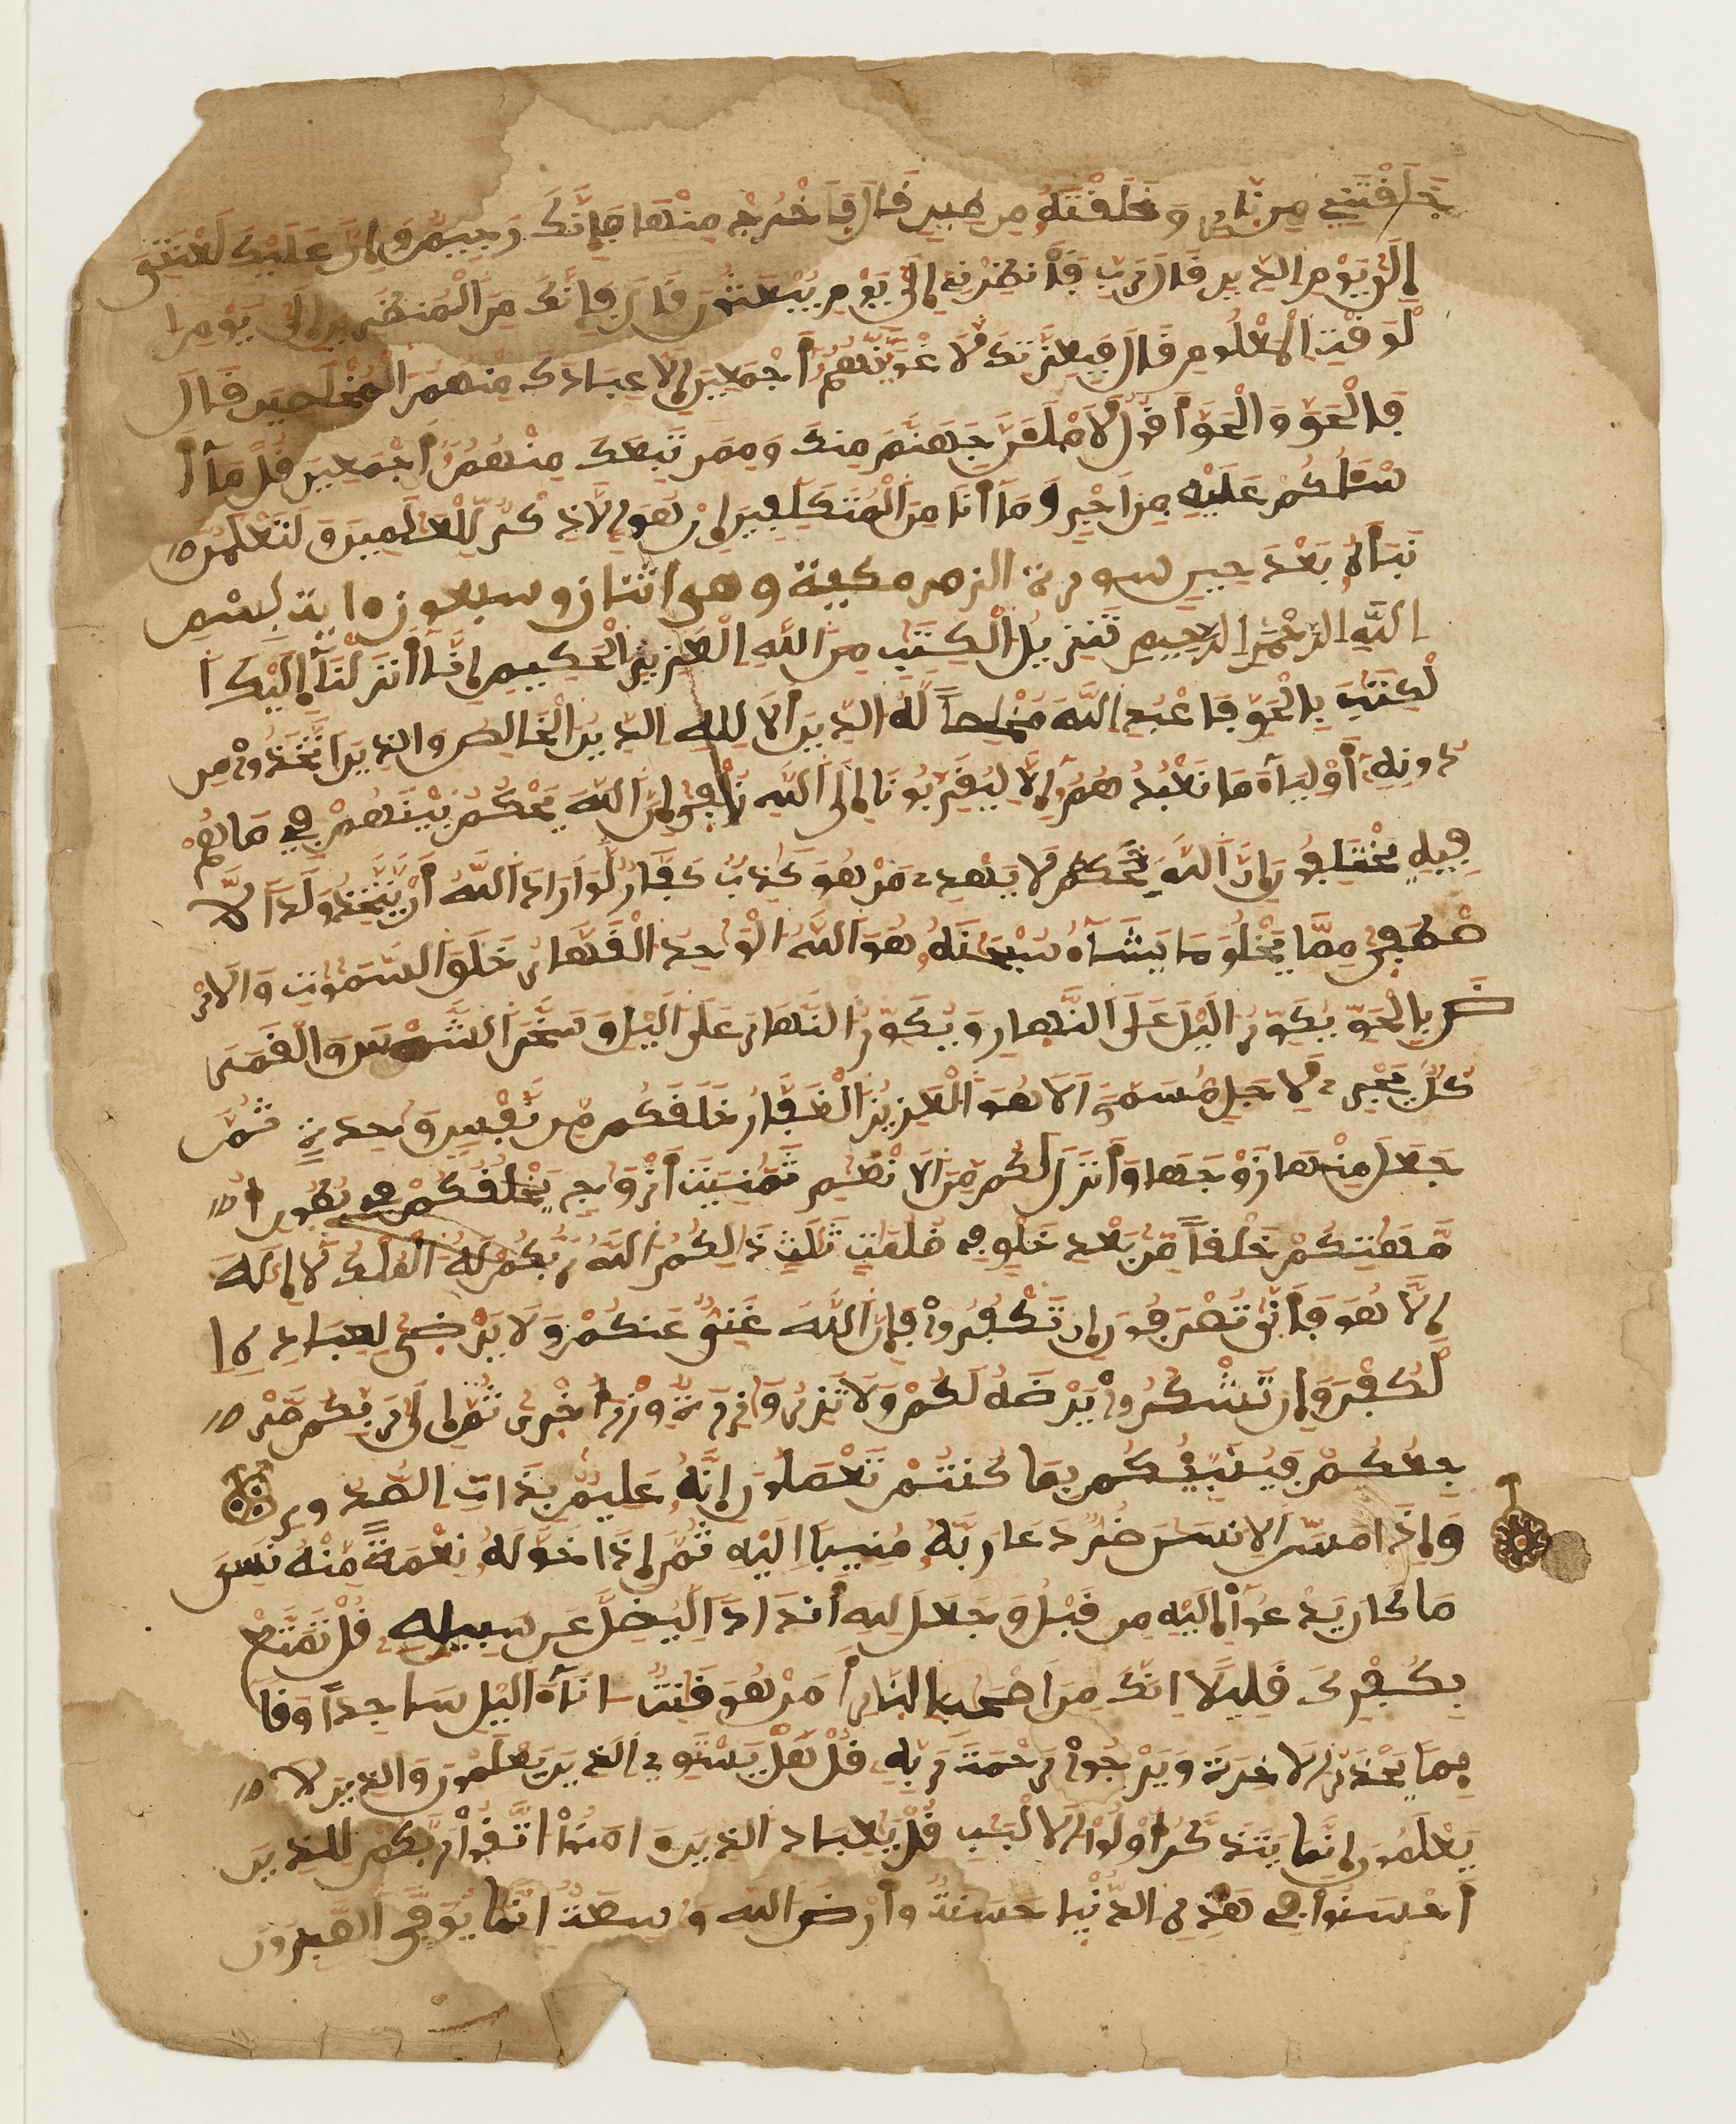 خَلَقْتَنِے مِن نّارٖ وَخَلَقْتَهُۥ مِن طِينٖ قَالَ فَاخْرُجْ مِنْهَا فَإِنَّكَ رَجِيمٞ وَإِنَّ عَلَيْكَ لَعْنَتِيَ
إِلَىٰ يَوْمِ الدِّينِ قَالَ رَبِّ فَأَنظِرْنِے إِلَىٰ يَوْمِ يُبْعَثُونَ قَالَ فَإِنَّكَ مِنَ الْمُنظَرِينَ إِلَىٰ يَوْمِ ا
لْوَقْتِ الْمَعْلُومِ قَالَ فَبِعِزَّتِكَ لَأُغْوِيَنَّهُمُۥ أَجْمَعِينَ إِلَّا عِبَادَكَ مِنْهُمُ الْمُخْلَصِينَ قَالَ
فَالْحَقَّ وَالْحَقَّ أَقُولُ لَأَمْلَأَنَّ جَهَنَّمَ مِنكَ وَمِمَّن تَبِعَكَ مِنْهُمُۥ أَجْمَعِينَ قُلْ مَآ أَ
سْـَٔلُكُمْ عَلَيْهِ مِنَ اجْرٖ وَمَآ أَنَا مِنَ الْمُتَكَلِّفِينَ إِنْ هُوَ إِلَّا ذِكْرٞ لِّلْعَٰلَمِينَ وَلَتَعْلَمُنَّ
نَبَأَهُۥ بَعْدَ حِينٖ سورة الزمر مكية وهي اثنان وسبعون ءاية بِسْمِ
اللَّهِ الرَّحْمَٰنِ الرَّحِيمِ تَنزِيلُ الْكِتَٰبِ مِنَ اللَّهِ الْعَزِيزِ الْحَكِيمِ إِنَّآ أَنزَلْنَآ إِلَيْكَ ا
لْكِتَٰبَ بِالْحَقِّ فَاعْبُدِ اللَّهَ مُخْلِصاً لَّهُ الدِّينَ أَلَا لِلهِ الدِّينُ الْخَالِصُ وَالذِينَ اتَّخَذُواْ مِن
دُونِهِۦٓ أَوْلِيَآءَ مَا نَعْبُدُهُمُۥٓ إِلَّا لِيُقَرِّبُونَآ إِلَى اللَّهِ زُلْفَىٰ إِنَّ اللَّهَ يَحْكُمُ بَيْنَهُمْ فِے مَا هُمْ
فِيهِ يَخْتَلِفُونَ إِنَّ اللَّهَ يَحْكُمُ لَا يَهْدِے مَنْ هُوَ كَٰذِبٞ كَفَّارٞ لَّوَ ارَادَ اللَّهُ أَنْ يَّتَّخِذَ وَلَداً لَّا
صْطَفَىٰ مِمَّا يَخْلُقُ مَا يَشَآءُ سُبْحَٰنَهُۥ هُوَ اللَّهُ الْوَٰحِدُ الْقَهَّارُ خَلَقَ السَّمَٰوَٰتِ وَالَارْ
ضَ بِالْحَقِّ يُكَوِّرُ اليْلَ عَلَى النَّهَارِ وَيُكَوِّرُ النَّهَارَ عَلَى اليْلِ وَسَخَّرَ الشَّمْسَ وَالْقَمَرَ
كُلّٞ يَجْرِے لِأَجَلٖ مُّسَمّىً اَلَا هُوَ الْعَزِيزُ الْغَفَّٰرُ خَلَقَكُم مِّن نَّفْسٖ وَٰحِدَةٖ ثُمَّ
جَعَلَ مِنْهَا زَوْجَهَا وَأَنزَلَ لَكُم مِّنَ الَانْعَٰمِ ثَمَٰنِيَةَ أَزْوَٰجٖ يَخْلُقُكُمْ فِے بُطُونِ أُ
مَّهَٰتِكُمْ خَلْقاً مِّن بَعْدِ خَلْقٖ فِے ظُلُمَٰتٖ ثَلَٰثٖ ذَٰلِكُمُ اللَّهُ رَبُّكُمْ لَهُ الْمُلْكُ لَا إِلَٰهَ
إِلَّا هُوَ فَأَنَّىٰ تُصْرَفُونَ إِن تَكْفُرُواْ فَإِنَّ اللَّهَ غَنِيٌّ عَنكُمْ وَلَا يَرْضَىٰ لِعِبَادِهِ ا
لْكُفْرَ وَإِن تَشْكُرُواْ يَرْضَهُ لَكُمْ وَلَا تَزِرُ وَازِرَةٞ وِزْرَ أُخْرَىٰ ثُمَّ إِلَىٰ رَبِّكُم مَّرْ
جِعُكُمْ فَيُنَبِّئُكُم بِمَا كُنتُمْ تَعْمَلُونَ إِنَّهُۥ عَلِيمٞ بِذَاتِ الصُّدُورِ
وَإِذَا مَسَّ الِانسَٰنَ ضُرّٞ دَعَا رَبَّهُۥ مُنِيباً اِلَيْهِ ثُمَّ إِذَا خَوَّلَهُۥ نِعْمَةً مِّنْهُ نَسِيَ
مَا كَانَ يَدْعُوٓاْ إِلَيْهِ مِن قَبْلُ وَجَعَلَ لِلهِ أَندَاداً لِّيُضِلَّ عَن سَبِيلِهِۦ قُلْ تَمَتَّعْ
بِكُفْرِكَ قَلِيلًا اِنَّكَ مِنَ اَصْحَٰبِ النَّارِ أَمَنْ هُوَ قَٰنِتٌ ءَانَآءَ اليْلِ سَاجِداً وَقَآ
ئِماً يَحْذَرُ الَاخِرَةَ وَيَرْجُواْ رَحْمَةَ رَبِّهِۦ قُلْ هَلْ يَسْتَوِے الذِينَ يَعْلَمُونَ وَالذِينَ لَا
يَعْلَمُونَ إِنَّمَا يَتَذَكَّرُ أُوْلُواْ الَالْبَٰبِ قُلْ يَٰعِبَادِ الذِينَ ءَامَنُواْ اتَّقُواْ رَبَّكُمْ لِلذِينَ
أَحْسَنُواْ فِے هَٰذِهِ الدُّنْيَا حَسَنَةٞ وَأَرْضُ اللَّهِ وَٰسِعَةٌ اِنَّمَا يُوَفَّى الصَّٰبِرُونَ